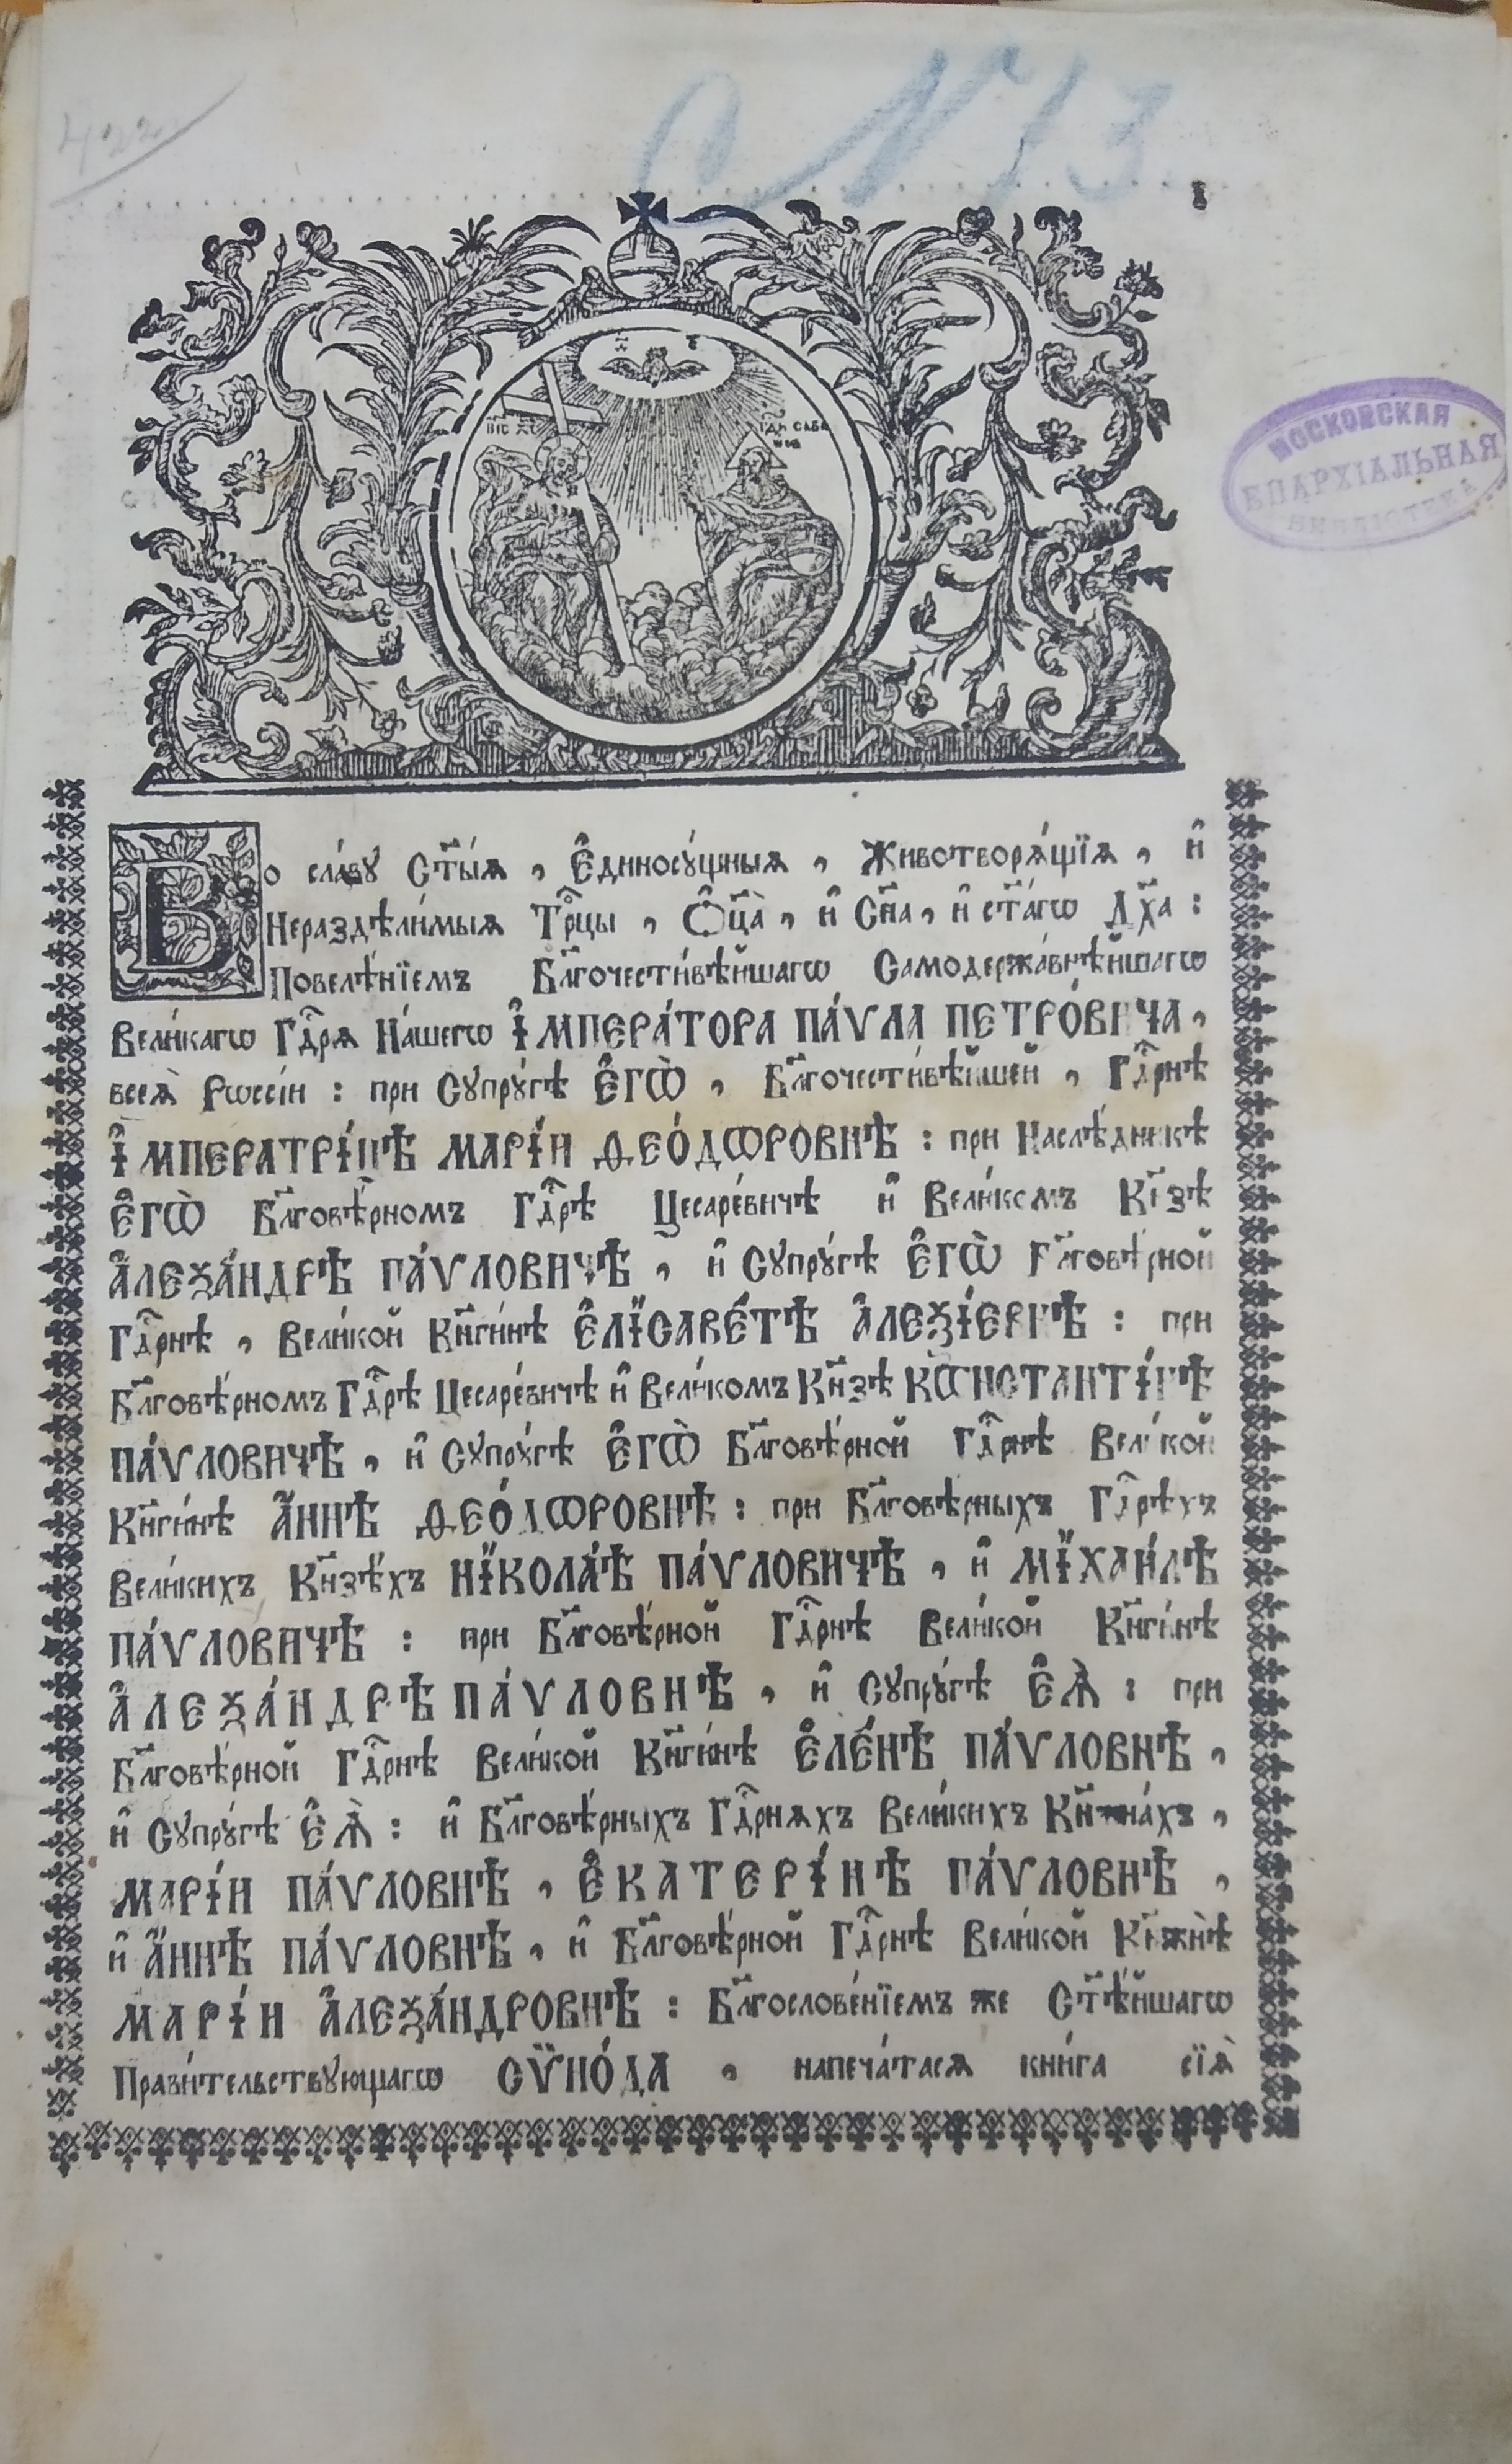 422
N 13
І҃С Х҃С
МОСКОВСКАЯ
ЕПАРХІАЛЬНАЯ
БИБЛІОТЕКА
Во сла́ву Ст҃ы́ѧ , Є҆диносу́щныѧ , Животворѧ́щїѧ , и҆
Нераздѣли́мыѧ Трⷪ҇цы , Ѻ҆ц҃а̀ , и҆ Сн҃а , и҆ ст҃а́гѡ Дх҃а :
Повелѣ́нїемъ Бл҃гочести́вѣйшагѡ Самодержа́внѣйшагѡ
Вели́кагѡ Гдⷭ҇рѧ На́шегѡ І҆МПЕРА́ТОРА ПА́ѴЛА ПЕТРО́ВИЧА ,
всеѧ̀ Рѡссі́и : при Сꙋпрꙋ́гѣ Є҆ГѠ̀ , Бл҃гочести́вѣйшей , Гдⷭ҇рнѣ
І҆МПЕРАТРІ́ЦѢ МАРІ́И Ѳ҆ЕО́ДѠРОВНѢ : при Наслѣ́дникѣ
Є҆ГѠ̀ Бл҃говѣ́рномъ Гдⷭ҇рѣ Цесаре́вичѣ и҆ Вели́комъ Кн҃зѣ
А҆ЛЕѮА́НДРѢ ПА́ѴЛОВИЧѢ , и҆ Сꙋпрꙋ́гѣ Є҆ГѠ̀ Бл҃говѣ́рной
Гдⷭ҇рнѣ , Вели́кой Кн҃ги́нѣ Є҆ЛІСАВЕ́ТѢ А҆ЛЕѮІ́ЕВНѢ : при
Бл҃говѣ́рномъ Гдⷭ҇рѣ Цесаре́вичѣ и҆ Вели́комъ Кн҃зѣ КѠНСТАНТІ́НѢ
ПА́ѴЛОВИЧѢ , и҆ Сꙋпрꙋ́гѣ Є҆ГѠ̀ Бл҃говѣ́рной Гдⷭ҇рнѣ Вели́кой
Кн҃ги́нѣ А҆́ННѢ Ѳ҆ЕО́ДѠРОВНѢ : при Бл҃говѣ́рныхъ Гдⷭ҇рѣхъ
Вели́кихъ Кн҃зѣ́хъ НІКОЛА́Ѣ ПА́ѴЛОВИЧѢ , и҆ МІХАИ́ЛѢ
ПА́ѴЛОВИЧѢ : при Бл҃говѣ́рной Гдⷭ҇рнѣ Вели́кой Кн҃ги́нѣ
А҆ЛЕѮА́НДРѢ ПА́ѴЛОВНѢ , и҆ Сꙋпрꙋ́гѣ Є҆Ѧ̀ : при
Бл҃говѣ́рной Гдⷭ҇рнѣ Вели́кой Кн҃ги́нѣ Є҆ЛЕ́НѢ ПА́ѴЛОВНѢ ,
и҆ Сꙋпрꙋ́гѣ Є҆Ѧ̀ : и҆ Бл҃говѣ́рныхъ Гдⷭ҇рнѧхъ Вели́кихъ Кн҃жна́хъ ,
МАРІ́И ПА́ѴЛОВНѢ , Є҆КАТЕРІ́НѢ ПА́ѴЛОВНѢ ,
и҆ А҆́ННѢ ПА́ѴЛОВНѢ , и҆ Бл҃говѣ́рной Гдⷭ҇рнѣ Вели́кой Кн҃жнѣ̀
МАРІ́И А҆ЛЕѮА́НДРОВНѢ : Бл҃гослове́нїемъ же Ст҃ѣ́йшагѡ
Прави́тельствꙋющагѡ СѴНО́ДА , напеча́тасѧ кни́га сїѧ̀